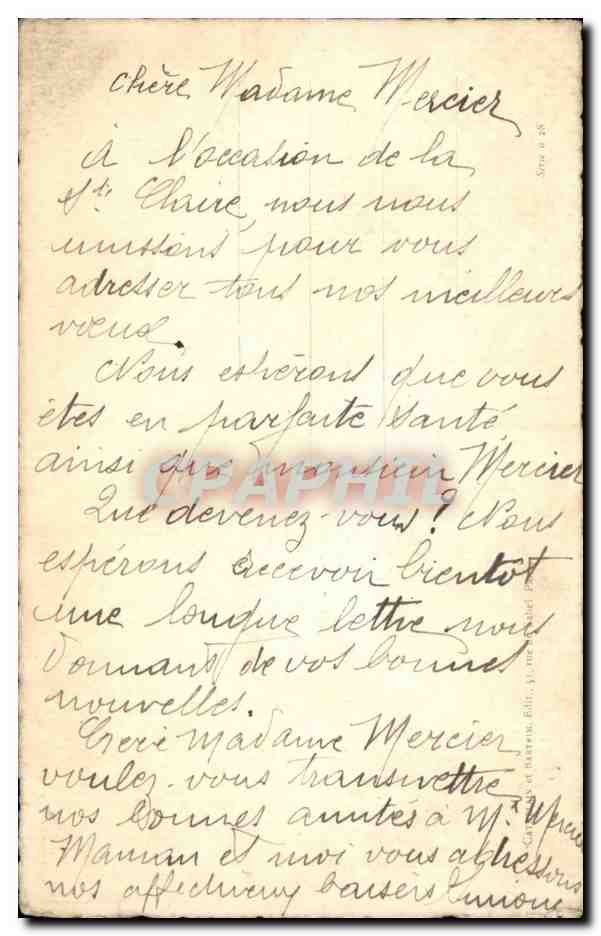 chère Madame Mercier,
À l'occasion de la
Ste Claire, nous nous
unissons pour vous
adresser tous nos meilleurs
vœux.
Nous espérons que vous
êtes en parfaite santé,
ainsi que monsieur Mercier
Que devenez-vous! Nous
espérons recevoir bientôt
une longue lettre nous
donnant de vos bonnes
nouvelles.
Chère Madame Mercier,
voulez-vous transmettre
nos bonnes amitiés à Mr Mercier
Maman et moi vous adressons
nos affectueux baisers
CPAPHIL
Série 028
Edit., 51, rue